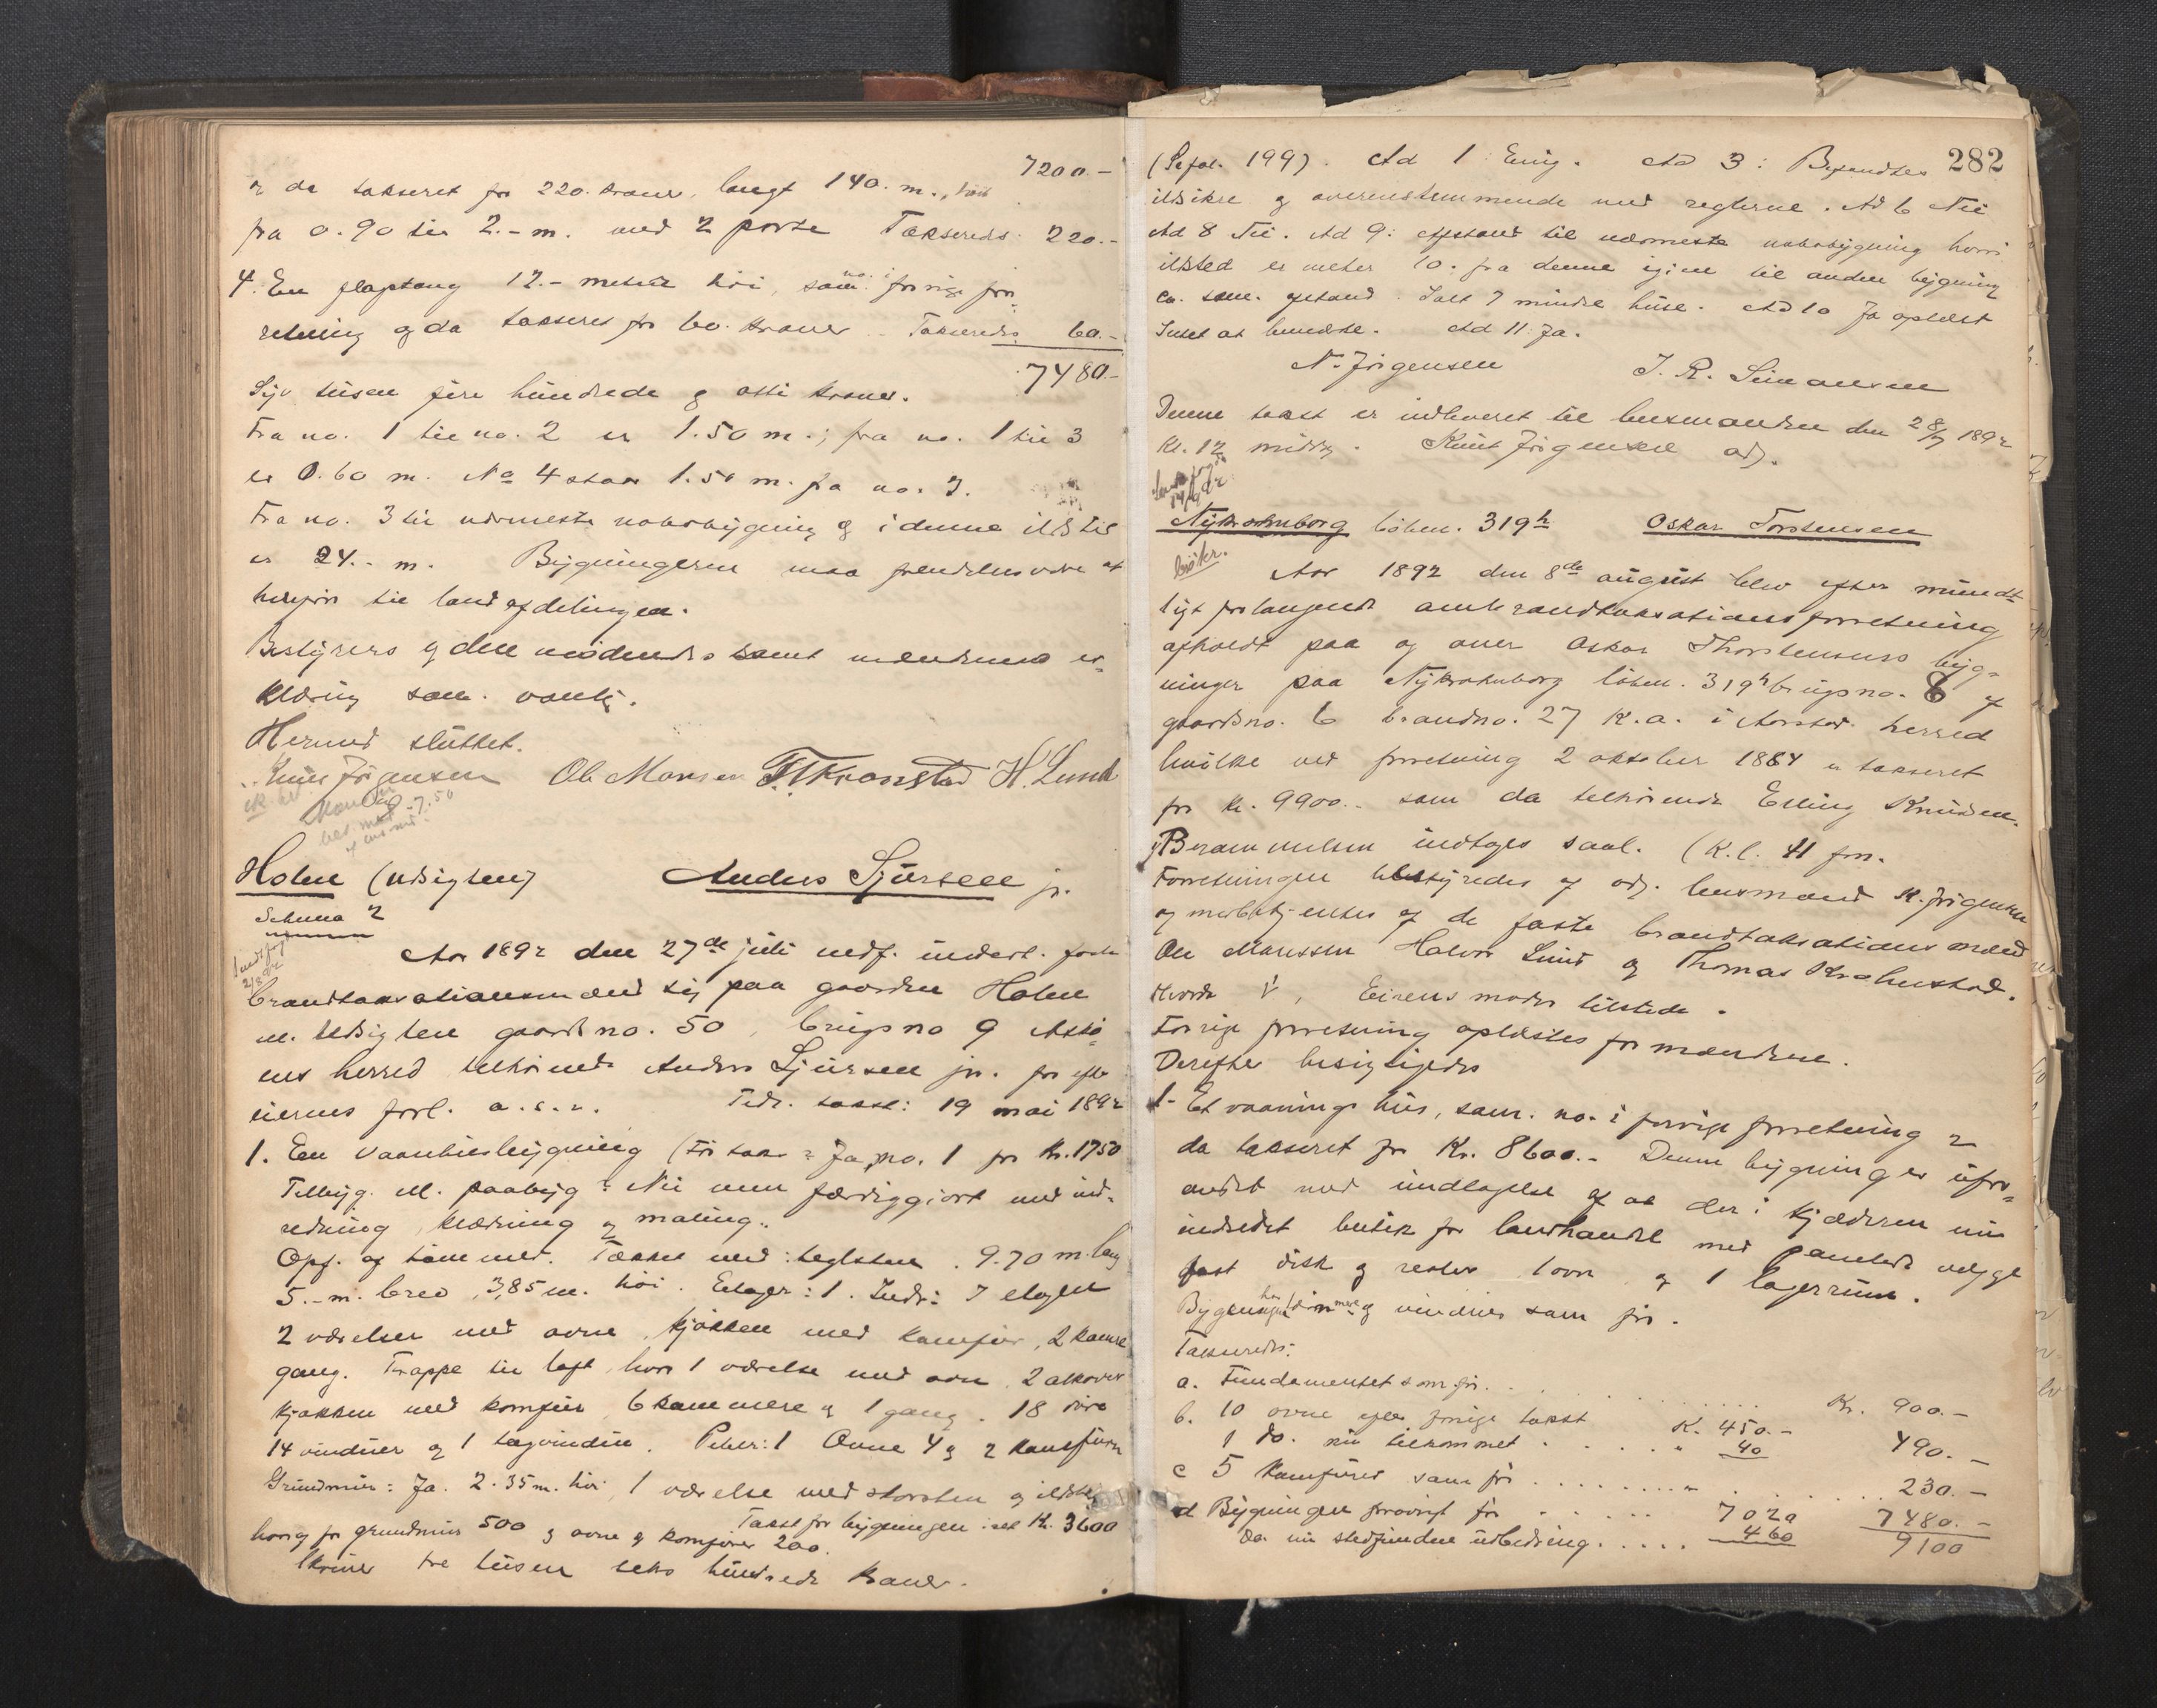 7200.-
er da takseret for 220. kroner, langt 140. m., høit
fra 0.90 til 2.- m. med 2 porte Takseredes 220.-
4. En flagstang 12.- meter høi, som no. i forrige for-
retning og da takseret for 60. kroner. Takseredes 60.-
7480.-
Syv tusen fire hundrede og otti kroner.
Fra no. 1 til no. 2 er 1.50 m.; fra no. 1 til 3
er 0.60 m. No 4 staar 1.50 m. fra no. 3.
Fra no. 3 til nærmeste nabobygning og i denne ildsted
er 24.- m. Bygningerne maa fremdeles være at
henføre til landafdelingen.
Bestyrers og den mødendes samt mændenes er-
klæring som vanlig.
Hermed sluttet.
Knut Jørgensen Ole Monsen T. Kronstad H. Lund
Holen (Udsigten) Anders Sjursen jr.
Schema 2
Aar 1892 den 27de juli indf. undert. faste
brandtaksationsmænd sig paa gaarden Holen
m. Udsigten gaardsno. 50, brugsno 9 Askø-
ens herred tilhørende Anders Sjursen jr. for efter
eierens forl. a. s. v. Tidl. takst: 19 mai 1892
1. En vaanhusbygning (Før takst? Ja, no. 1 for Kr. 1750
Tilbyg. ell. paabyg? Nei men færdiggjort med ind-
redning, klædning og maling.
Opf. af tømmer. Tækket med: teglsten. 9.70 m. lang
5.- m. bred, 3,85 m. høi. Etager: 1. Indr: I etagen
2 værelser med ovne, kjøkken med komfur, 2 kamre
gang. Trappe til loft, hvor 1 værelse med ovn, 2 alkover
kjøkken med komfur, 6 kammere og 1 gang. 18 døre
14 vinduer og 1 tagvindue. Piber: 1 Ovne 4 og 2 komfurer
Grundmur: Ja. 2.35 m. høi, 1 værelse med skorsten og ildsted
Takst for bygningen: ialt Kr. 3600
herog for grundmur 500 og ovne og komfurer 200.
Skriver tre tusen seks hundrede kroner.
282
(Sefol. 199). Ad 1 Enig. Ad 3: Befandtes
ildsikre og overensstemmende med reglerne. Ad 6 Nei
Ad 8 Nei. Ad 9: Afstand til nærmeste nabobygning hvori
ildsted er meter 10. fra denne igjen til anden bygning
ca. sam. afstand. Ialt 7 mindre huse. Ad 10 Ja oplæst
Intet at bemærke. Ad 11. Ja.
N. Jørgensen J. R. Simonsen
Denne takst er indleveret til lensmanden den 28/7 1892
Kl. 12 middag. Knut Jørgensen adj.
Nykrohnborg løben. 319h Oskar Torstensen
Aar 1892 den 8de august blev efter mundt-
ligt forlangende ombrandtaksationsforretning
afholdt paa og over Oskar Thorstensens byg-
ninger paa Nykrohnborg løben. 319h brugsno. 8 af
gaardsno. 6 brandno. 27 K. a. i Aarstad herred
hvilke ved forretning 2 oktober 1884 er takseret
for kr. 9900.- som da tilhørende Erling Knudsen.
Berammelsen indtages saal. (Kl. 11 fm.
Forretningen bestyredes af adj. lensmand K. Jørgensen
og medbetjentes af de faste brandtaksationsmænd
Ole Monssen Halvor Lund og Thomas Krohnstad.
Eierens moder tilstede.
Forrige forretning oplæstes for mændene.
Derefter besigtigedes
1. Et vaaningshus, sam. no. i forrige forretning og
da takseret for Kr. 8600.- Denne bygning er ufor-
andret med undtagelse af at der i kjælderen nu
indredet butik for landhandel med panelede vægge
fast disk og reoler 1 ovn og 1 lagerrum.
Bygningen har dimmens. og vinduer som før.
Takseredes:
a. Fundamentet som før. . . . . . . . . Kr. 900.-
b. 10 ovne efter forrige takst K. 450.-
1 do. nu tilkommet . . . . " 40 490.-
c 5 komfurer som før . . . . . . . . 230.-
d Bygningen forøvrigt før . . . . . 7020
Do. nu stedfunden udbedring . . . . . 460 7480.-
9100